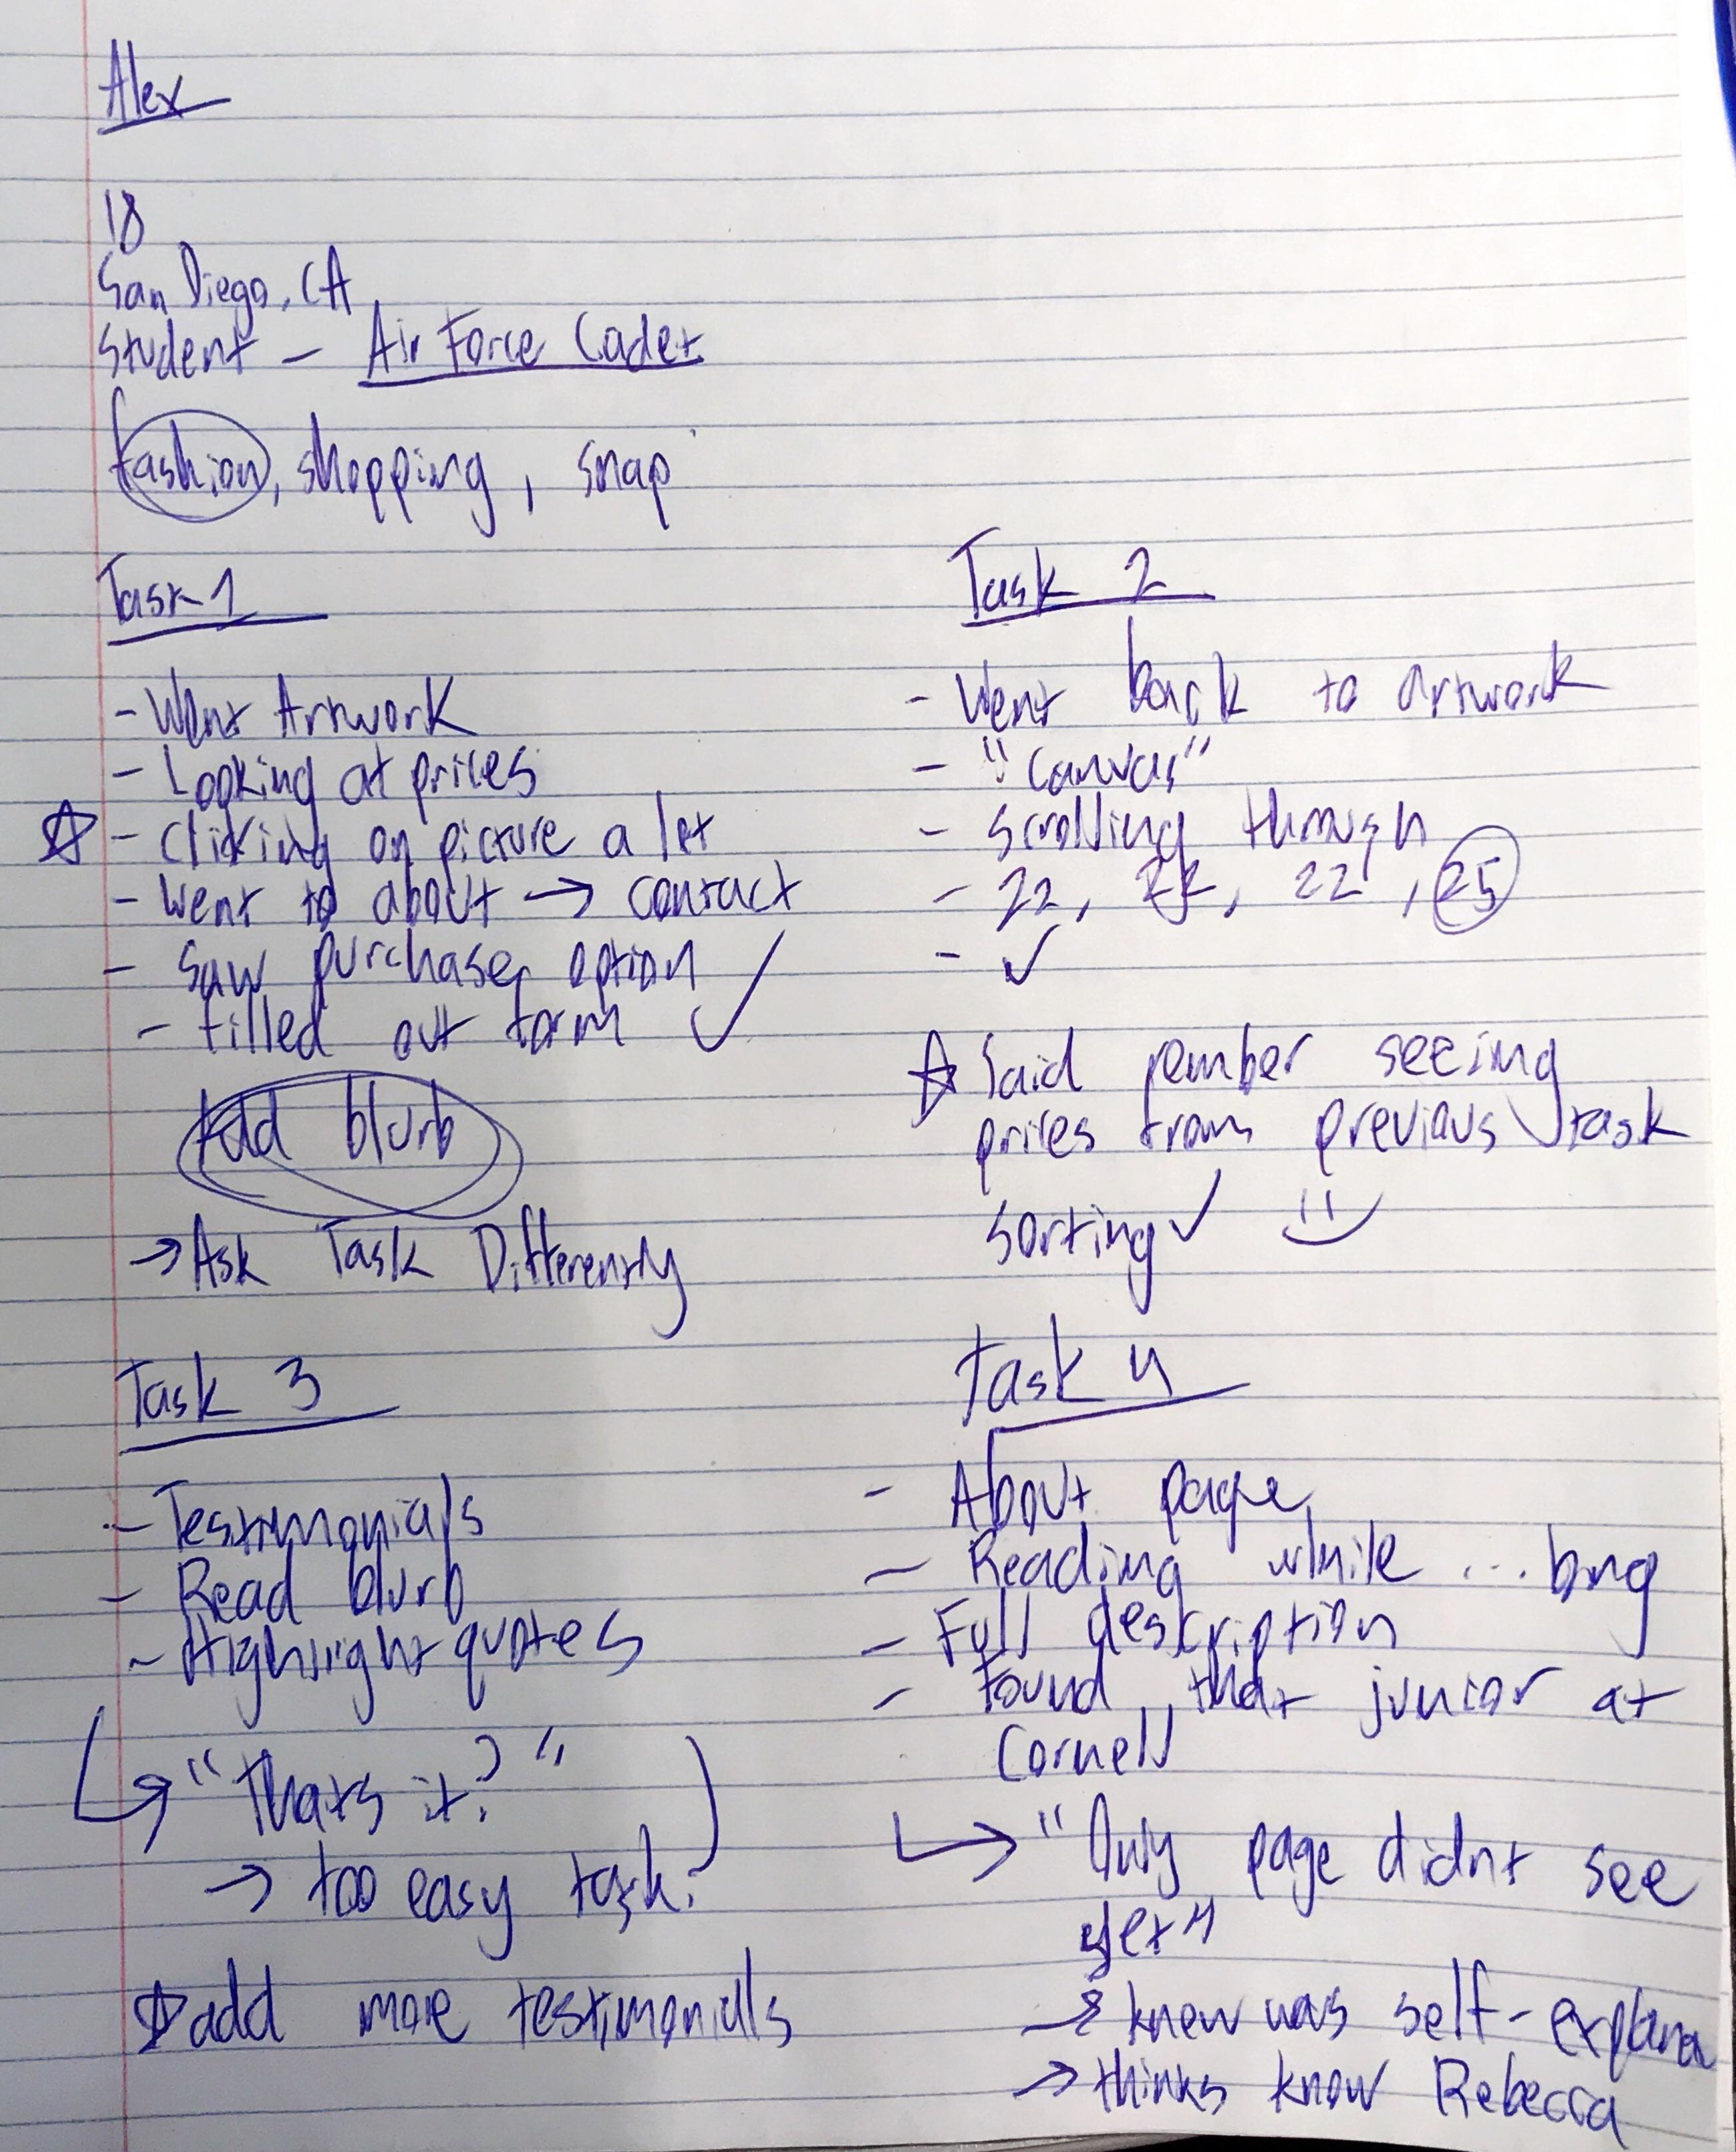 Alex
18
San Diego, CA
Student – Air Force Cadet
fashion, shopping, snap
Task 1
- Went Artwork
- Looking at prices
☆ - Clicking on picture a lot
- Went to about → contact
- Saw purchase option
- filled out form ✓
Add blurb
→ Ask Task Differently
Task 2
- Went back to artwork
- "Canvas"
- Scrolling through
- 22, 22, 25
- ✓
☆ Said rember seeing
prices from previous task
sorting ✓
Task 3
- Testimonials
- Read blurb
- Highlight quotes
↳ "Thats it?"
→ too easy task.
☆ add more testimonials
Task 4
- About page
- Reading while ...
- Full description
- Found that junior at
Cornell
↳ "Only page didnt see
yet"
→ knew was self-explana
→ thinks know Rebecca